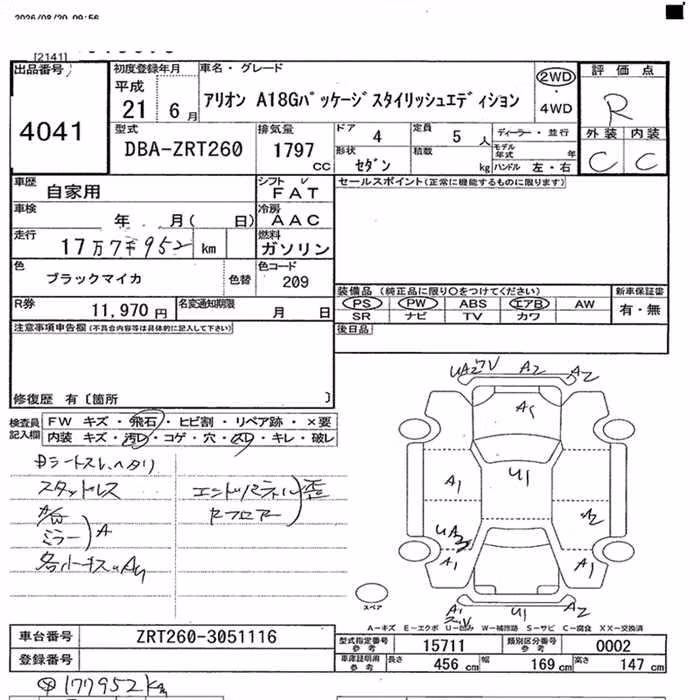 2026/08/20 09:56
[2141]
出品番号
4041
初度登録年月
平成
21 6月
車名・グレード
アリオン A18Gパッケージスタイリッシュエディション
2WD
・
4WD
評価点
R
外装 内装
C C
型式
DBA-ZRT260
排気量
1797
CC
ドア 4
形状
セダン
定員 5人
積数 kg
ディーラー・並行
モデル年式 年
ハンドル 左・右
車歴
自家用
シフト
FAT
車検
年 月( 日)
冷房
AAC
走行
17万7千952 km
燃料
ガソリン
色
ブラックマイカ
色替
色コード
209
R券
11,970円
名変通知期限
月 日
セールスポイント(正常に機能するものに限ります)
装備品(純正品に限り○をつけてください)
PS PW ABS エアB AW
SR ナビ TV カワ
新車保証書
有・無
後日品
注意事項申告欄(不具合内容等は具体的に記入して下さい)
修復歴 有〔箇所 〕
検査員記入欄
FW キズ・飛石・ヒビ割・リペア跡・×要
内装 キズ・汚レ・コゲ・穴・スレ・キレ・破レ
スタッドレス
ミラー A
UA2 A2 A2
A1
U1
A1 A2
A1 A1
A1 U1 A2
スペア
A−キズ E−エクボ U−凹み W−補修跡 S−サビ C−腐食 XX−交換済
車台番号 ZRT260-3051116
登録番号
型式指定番号参考 15711 類別区分番号参考 0002
車庫証明用参考 長さ 456 cm 幅 169 cm 高さ 147 cm
177952km